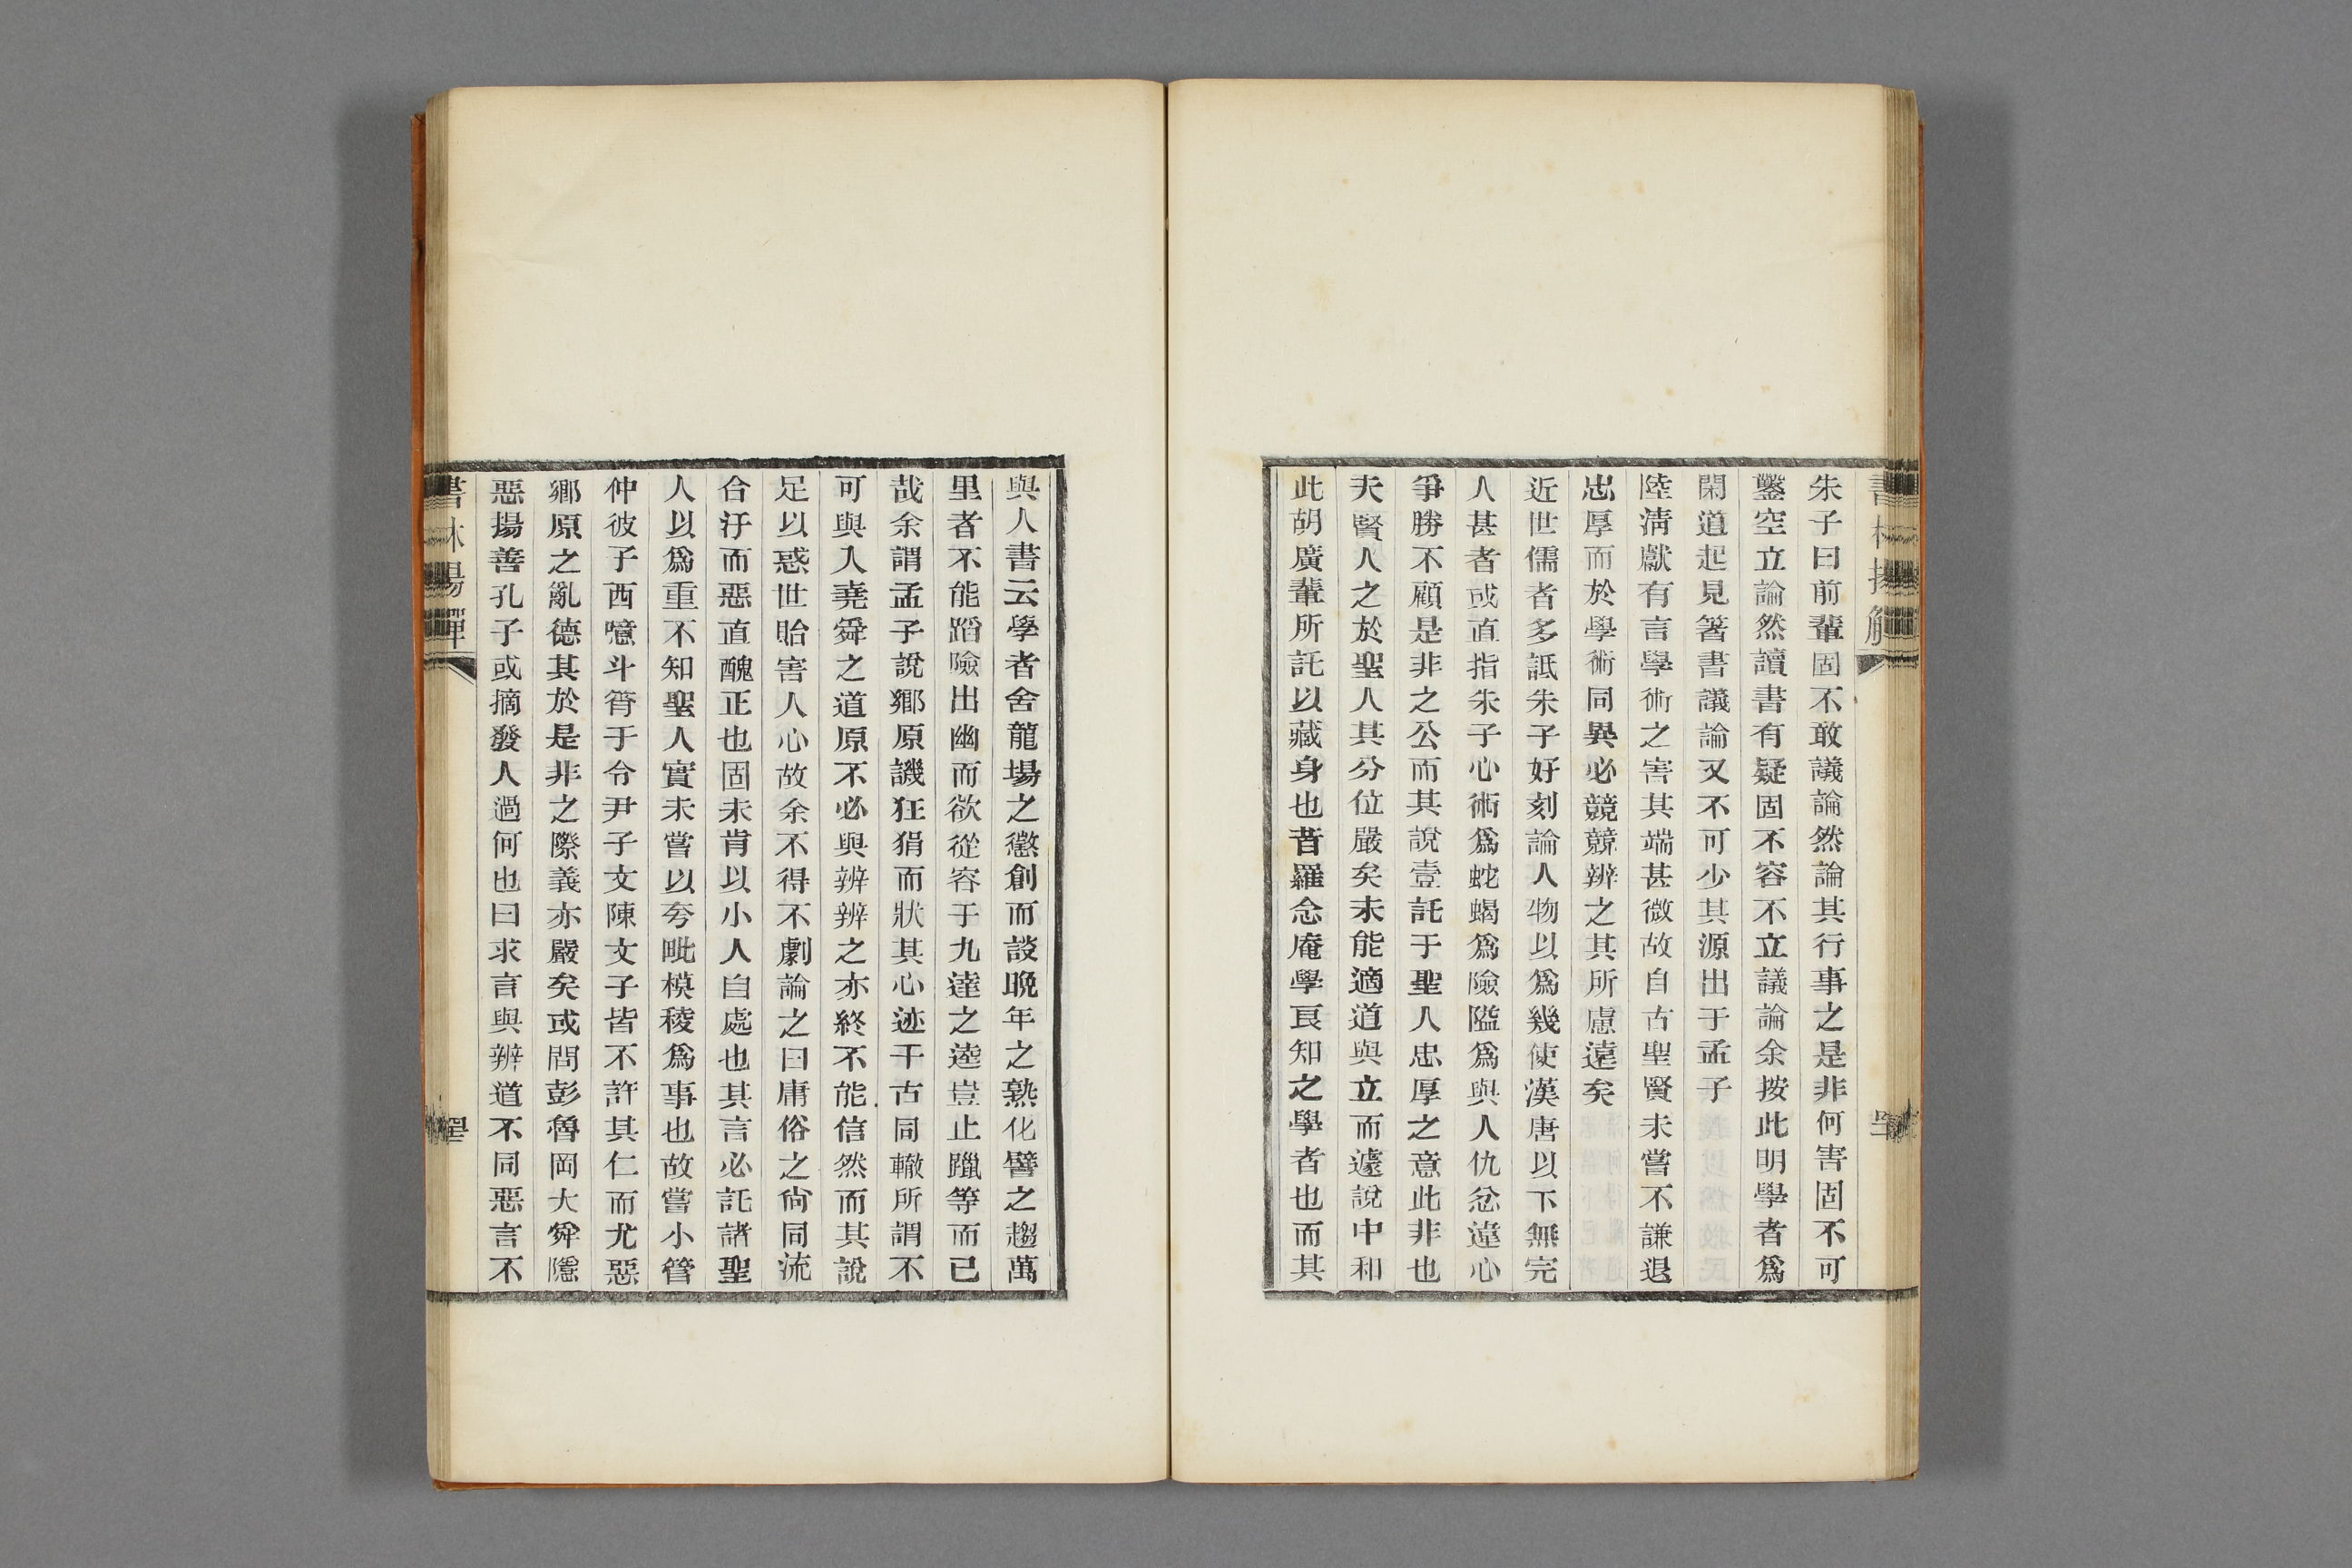 朱子曰前輩固不敢議論然論其行事之是非何害固不可
鑿空立論然讀書有疑固不容不立議論余按此明學者爲
閑道起見箸書議論又不可少其源出于孟子
陸淸獻有言學術之害其端甚微故自古聖賢未嘗不謙退
忠厚而於學術同異必競競辨之其所慮遠矣
近世儒者多詆朱子好刻論人物以爲幾使漢唐以下無完
人甚者或直指朱子心術爲蛇蝎爲險隘爲與人仇忿違心
爭勝不顧是非之公而其說壹託于聖人忠厚之意此非也
夫賢人之於聖人其分位嚴矣未能適道與立而遽說中和
此胡廣輩所託以藏身也昔羅念庵學良知之學者也而其
與人書云學者舍龍場之懲創而談晚年之熟化譬之趨萬
里者不能蹈險出幽而欲從容于九達之逵豈止躐等而已
哉余謂孟子說鄉原譏狂狷而狀其心迹千古同轍所謂不
可與入堯舜之道原不必與辨辨之亦終不能信然而其說
足以惑世貽害人心故余不得不劇論之曰庸俗之尙同流
合汙而惡直醜正也固未肯以小人自處也其言必託諸聖
人以爲重不知聖人實未嘗以夸毗模稜爲事也故嘗小管
仲彼子西噫斗筲于令尹子文陳文子皆不許其仁而尤惡
鄉原之亂德其於是非之際義亦嚴矣或問彭魯岡大舜隱
惡揚善孔子或摘發人過何也曰求言與辨道不同惡言不